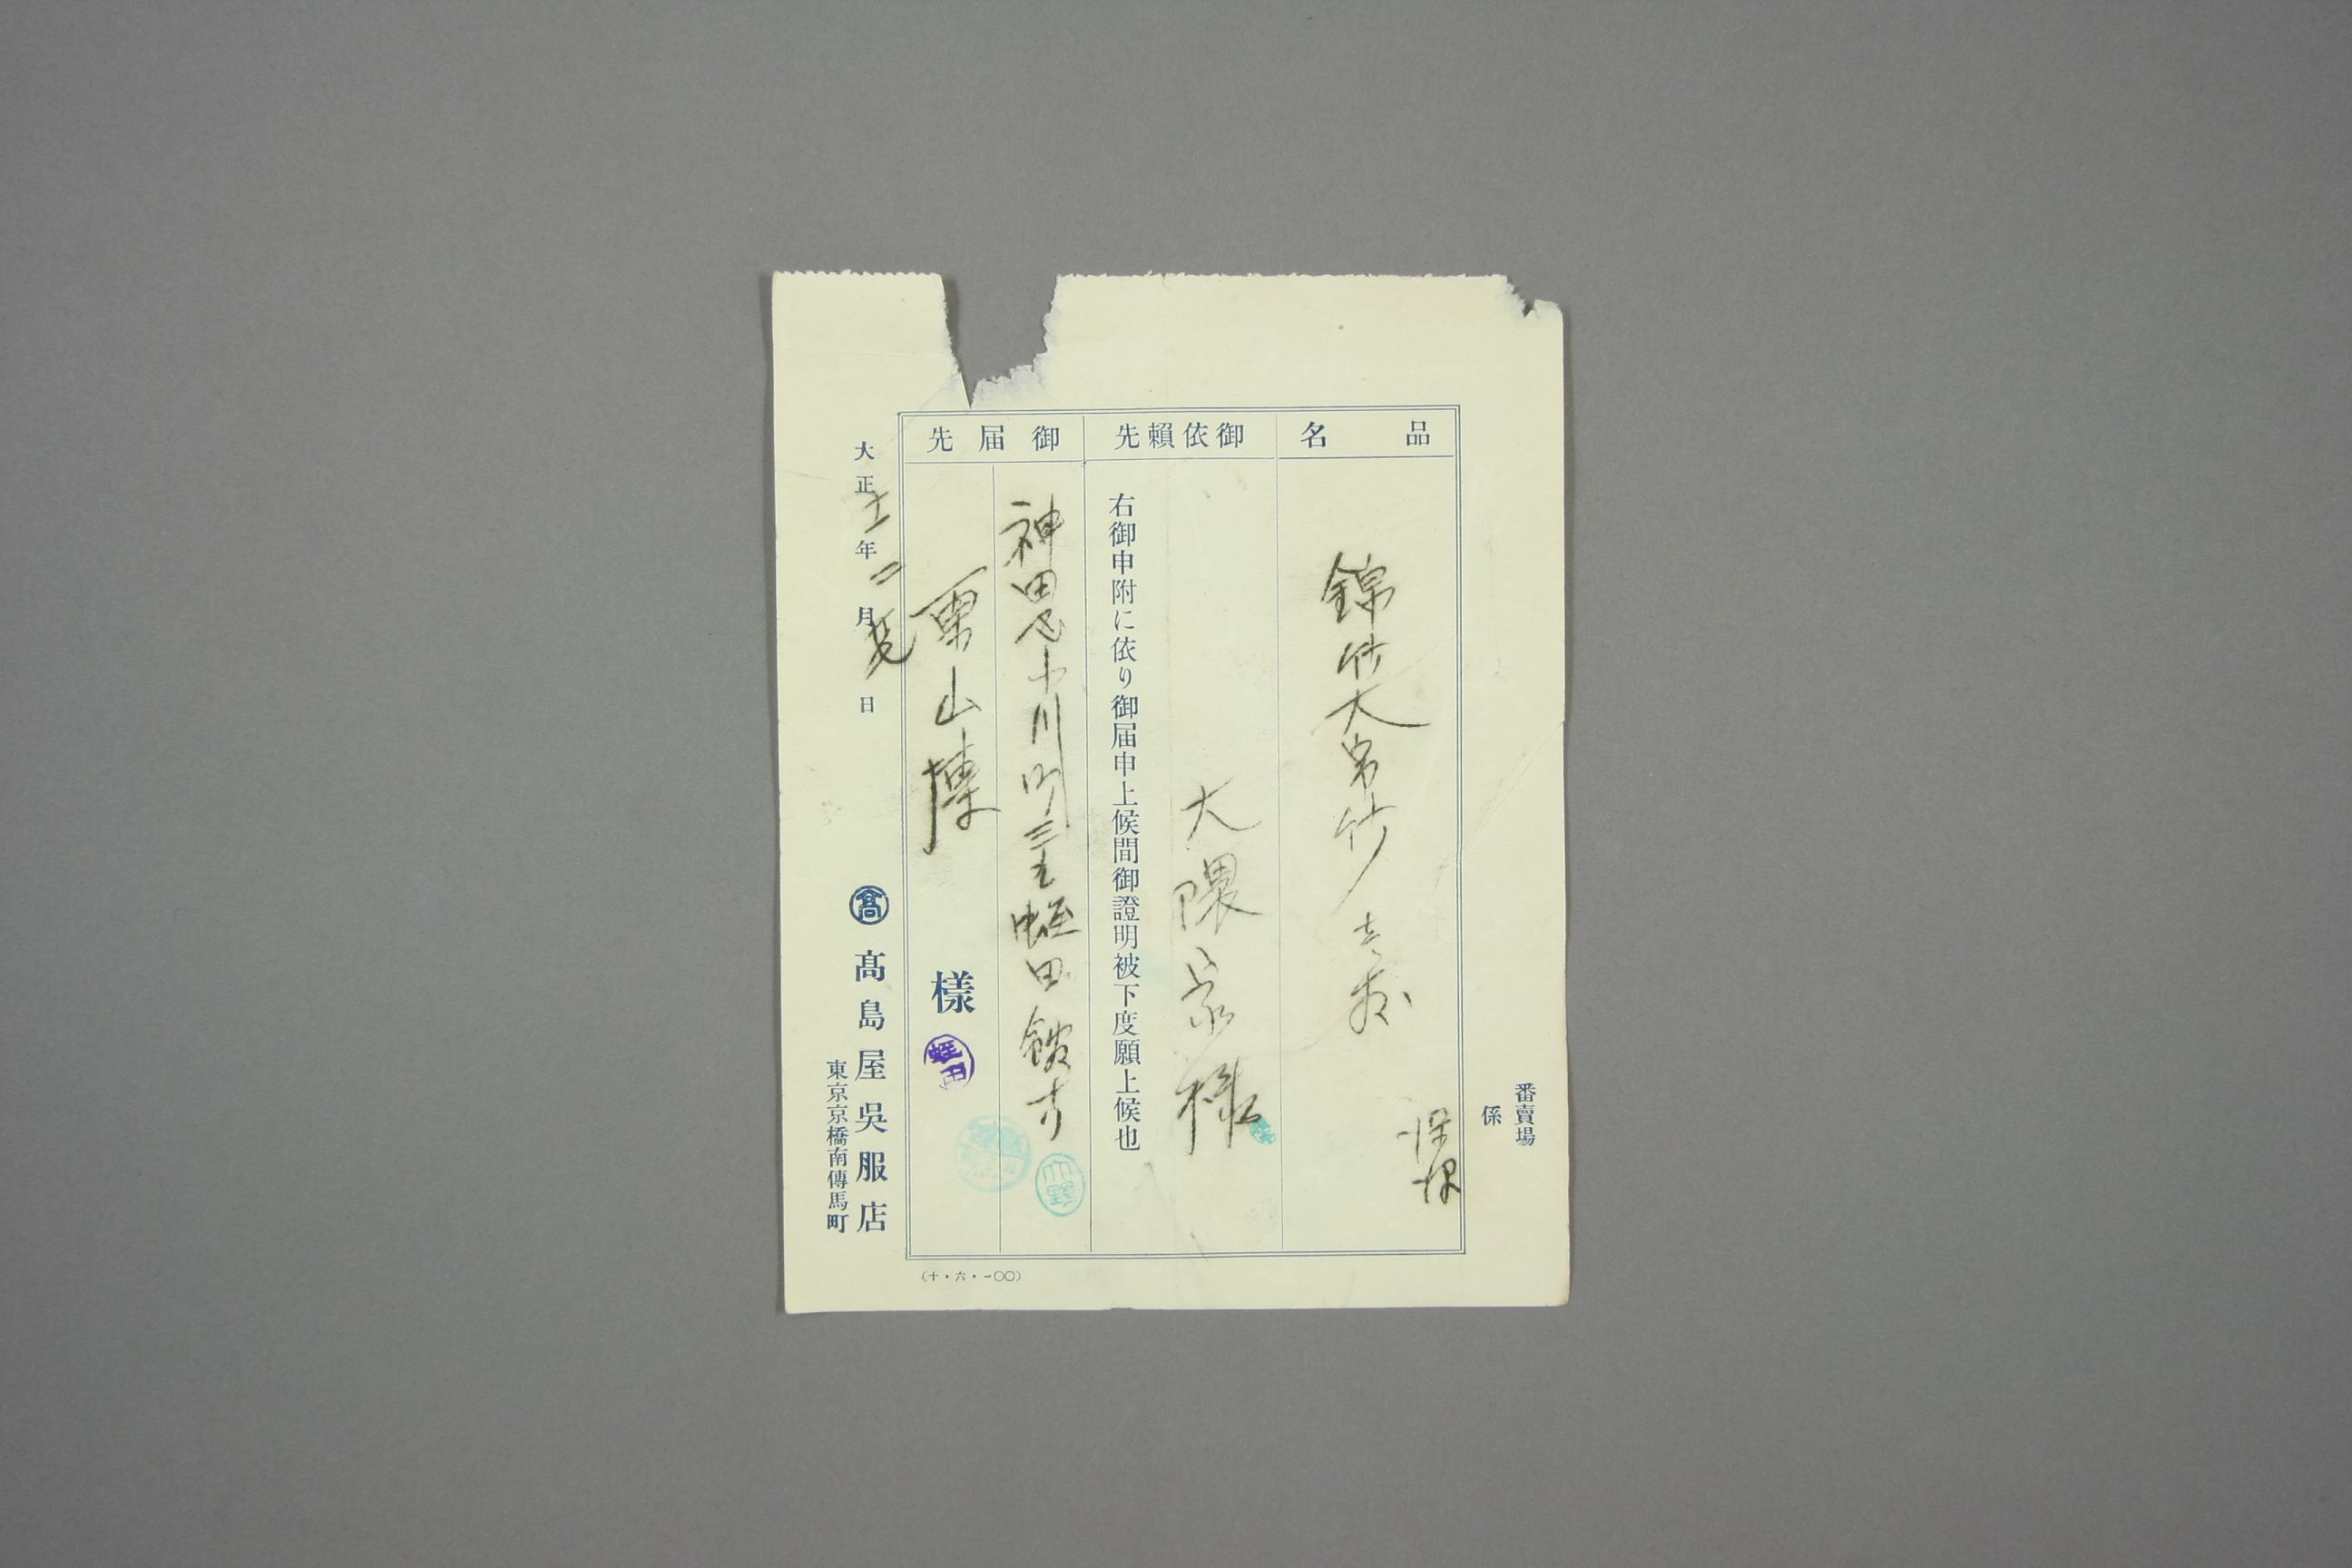 番賣場
係
品名
錦竹大島竹
御依頼先
大隈家様
右御申附に依り御届申上候間御證明被下度願上候也
御届先
神田区小川町三ノ五 蛭田館方
栗山博
様
蛭田
大正十一年二月 日
髙
髙島屋呉服店
東京京橋南傳馬町
(十・六・一〇〇)